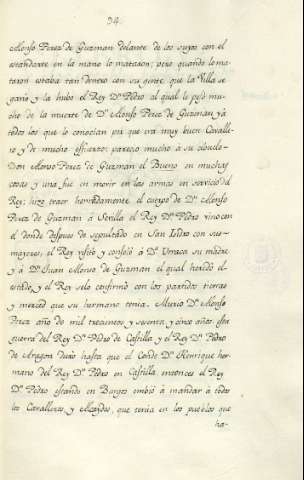 34.
Alonso Perez de Guzman delante de los suyos con el
estandarte en la mano lo mataron; pero quando lo ma-
taron estaba tan dentro con su gente que la Villa se
ganó y la hubo el Rey Dn. Pedro al qual le pesó mu-
cho de la muerte de Dn. Alonso Perez de Guzman, y á
todos los que lo conocian por que era muy buen Cavalle-
ro y de mucho esfuerzo: pareció mucho á su abuelo
Don Alonso Perez de Guzman el Bueno en muchas
cosas y una fue en morir en las armas en servicio del
Rey; hizo traer honradamente el cuerpo de Dn. Alonso
Perez de Guzman á Sevilla el Rey Dn. Pedro vino con
el donde despues de sepultado en San Isidro con sus
mayores, el Rey visitó y consoló á Da. Urraca su madre
y á Dn. Juan Alonso de Guzman el qual heredó el
estado, y el Rey selo confirmó con los partidos tierras
y merced que su hermano tenia. Murio Dn. Alonso
Perez año de mil trecientos y sesenta y cinco años. esta
guerra del Rey Dn. Pedro de Castilla y el Rey Dn. Pedro
de Aragon duró hasta que el Conde Dn. Henrique her-
mano del Rey Dn. Pedro en Castilla entonces el Rey
Dn. Pedro estando en Burgos embió á mandar á todos
los Cavalleros y Alcaydes, que tenia en los pueblos que
ha-